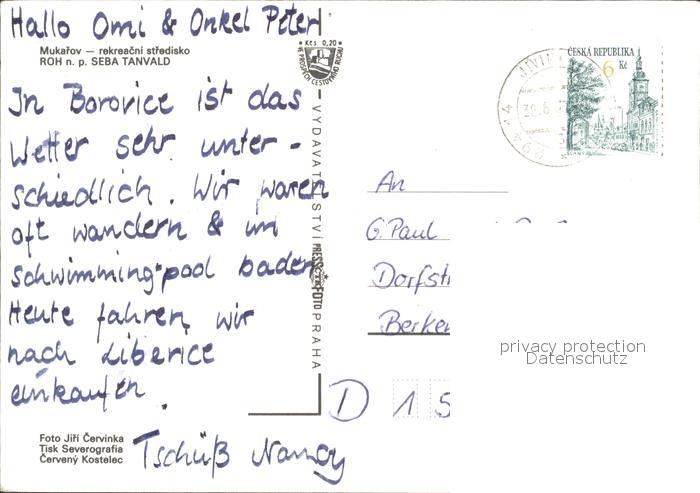 Hallo Omi & Onkel Peter!
Mukařov — rekreační středisko
ROH n. p. SEBA TANVALD
In Borovice ist das
Wetter sehr unter -
schiedlich. Wir waren
oft wandern & im
schwimming-pool baden.
Heute fahren wir
nach Liberice
einkaufen.
Tschüß Nancy
Foto Jiří Červinka
Tisk Severografia
Červený Kostelec
Kčs 0,20
VYDAVATELSTVÍ PRESSFOTO PRAHA
ČESKÁ REPUBLIKA
6 Kč
An
G. Paul
Dorfstr
Berke
D 15
privacy protection
Datenschutz